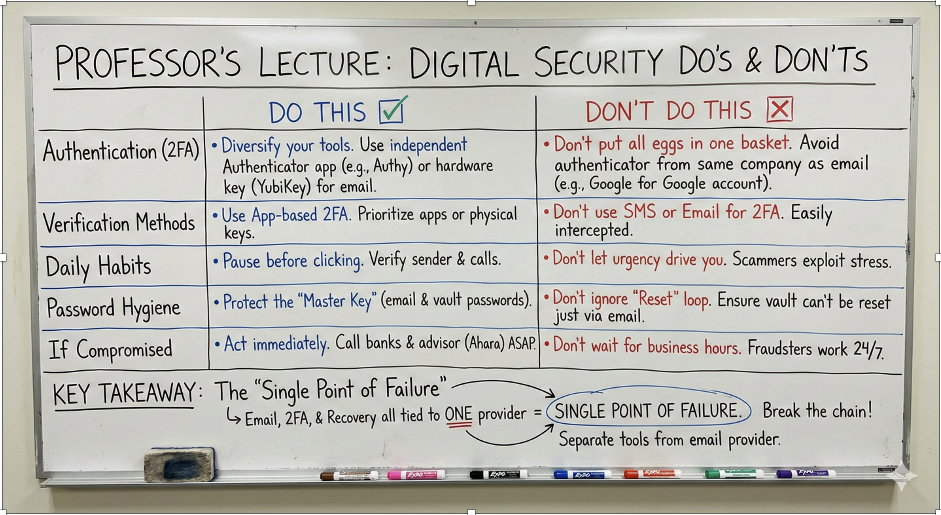 PROFESSOR'S LECTURE: DIGITAL SECURITY DO'S & DON'TS
DO THIS
DON'T DO THIS
Authentication (2FA)
• Diversify your tools. Use independent
Authenticator app (e.g., Authy) or hardware
key (YubiKey) for email.
• Don't put all eggs in one basket. Avoid
authenticator from same company as email
(e.g., Google for Google account).
Verification Methods
• Use App-based 2FA. Prioritize apps or physical
keys.
• Don't use SMS or Email for 2FA. Easily
intercepted.
Daily Habits
• Pause before clicking. Verify sender & calls.
• Don't let urgency drive you. Scammers exploit stress.
Password Hygiene
• Protect the "Master Key" (email & vault passwords).
• Don't ignore "Reset" loop. Ensure vault can't be reset
just via email.
If Compromised
• Act immediately. Call banks & advisor (Ahara) ASAP.
• Don't wait for business hours. Fraudsters work 24/7.
KEY TAKEAWAY: The "Single Point of Failure"
Email, 2FA, & Recovery all tied to ONE provider = SINGLE POINT OF FAILURE. Break the chain!
Separate tools from email provider.
EXPO
EXPO
EXPO
EXPO
EXPO
EXPO